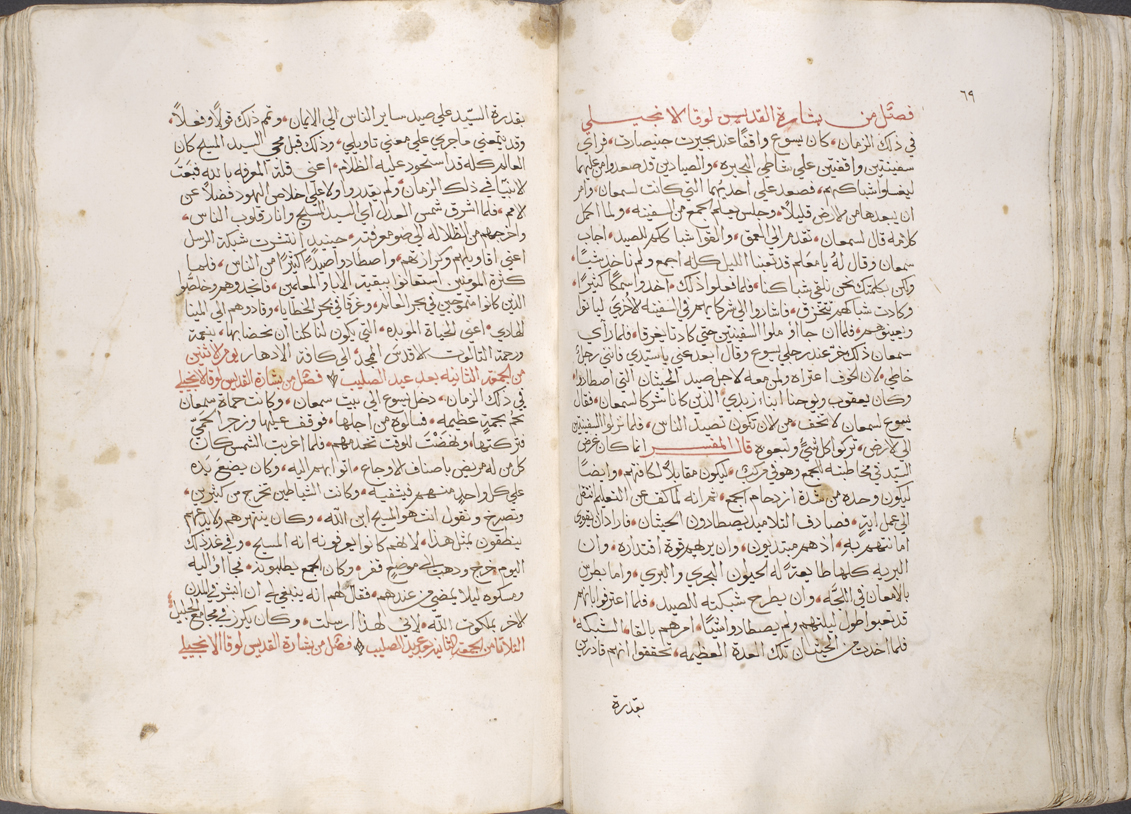 ٦٩
فصل من بشارة القديس لوقا الانجيلي
في ذلك الزمان، كان يسوع واقفاً عند بحيرت جنيصارت، فراي
سفينتين واقفتين علي شاطي البحيره، والصيادين قد صعدوا من عليهما
ليغسلوا شباكهم، فصعد علي أحديهما التي كانت لسمعان، وامر
ان يبعدها من الارض قليلاً، وجلس يعلم الجمع من السفينه، ولما اكمل
كلامه قال لسمعان، تقدم الي العمق، والقوا شباككم للصيد، اجاب
سمعان وقال له يا معلم قد تعبنا الليل كله اجمع ولم ناخد شيئا،
ولكن بكلمتك نحن نلقي شباكنا، فلما فعلوا ذلك، اخدوا سمكًا كثيرًا،
وكادت شباكهم تتخرق، فاشاروا الي شركايهم في السفينه الاخري لياتوا
ويعينوهم، فلما ان جااو ملوا السفينتين حتي كادتا يغرقا، فلما رآي
سمعان ذلك خر عند رجلي يسوع وقال ابعد عني يا سيدي فانني رجلٌ
خاطي، لان الخوف اعتراه ولمن معه لاجل صيد الحيتان التي اصطادوا،
وكان يعقوب ويوحنا ابنا زبدي، الذين كانا شركا لسمعان، فقال
يسوع لسمعان لا تخف، من الان تكون تصيد الناس، فلما نزلوا السفينتين
الي الارض، تركوا كل شيً وتبعوه قال المفسر انما كان غرض
السيد في مخاطبته الجمع وهو في مركب، ليكون مقابلاً لكافتهم، وايضًا
ليكون وحده من شدة ازدحام الجمع، ثم انه لما كف عن التعليم انتقل
الي عمل ايه، فصادف التلاميد يصطادون الحيتان، فاراد ان يقوي
امانتهم به، اد هم مبتديون، وان يريهم قوة اقتداره، وان
البريه كلها طايعة له الحيوان البحري والبري، وامر بطرس
بالامعان في اللجه، وان يطرح شبكته للصيد، فلما اعترفوا بانهم
قد تعبوا طول ليلتهم ولم يصطادوا شيًا، امرهم بالقا الشبكه،
فلما اخدت من الحيتان تلك العدة العظيمه، تحققوا انهم قادرين
بقدرة
بقدرة السيد علي صيد ساير الناس الي الايمان، وتم ذلك قولاً وفعلاً،
وقد يتمعني ما جري علي معني تاويلي، وذلك قبل مجي السيد المسيح كان
العالم كله قد استحود عليه الظلام، اعني قلة المعرفه بالله فبعث
الانبيا في ذلك الزمان، ولم يقدروا ولا علي خلاص اليهود فضلاً عن
الامم، فلما اشرق شمس العدل اي السيد المسيح وانار قلوب الناس،
واخرجهم من الظلاله الي ضو معرفته، حينيد انتشرت شبكة الرسل
اعني اقاويلهم وكرازتهم، واصطادوا صيدًا كثيرًا من الناس، فلما
كثرة المومنين استعانوا ببقية الابا والمعلمين، فاخدوهم وخلصوا
الدين كانوا متموجين في بحر العالم، وغرقا في بحر الخطايا، وقادوهم الي المينا
الهادي، اعني الحياة الموبده، التي يكون لنا كلنا ان نحضا بها، بنعمة
ورحمة الثالوت الاقدس الممجد الي كافة الادهار، يوم الاثنين
من الجمعه الثانيه بعد عيد الصليب فصل من بشارة القديس لوقا الانجيلي
في ذلك الزمان، دخل يسوع الي بيت سمعان، وكانت حماة سمعان
تحم بحميةٍ عظيمه، فسالوه من اجلها، فوقف عليها وزجر الحمي
فتركتها، ونهضت للوقت تخدمهم، فلما اغربت الشمس كان
كل من له مريض باصناف الاوجاع، اتوا بهم اليه، وكان يضع يده
علي كل واحدٍ منهم فيشفيه، وكانت الشياطين تخرج من كثيرين،
وتصرخ وتقول انت هو المسيح ابن الله، وكان ينتهرهم ولا يدعهم
ينطقون بمثل هدا، لانهم كانوا يعرفونه انه المسيح، وفي غد ذلك
اليوم، خرج ودهب الي موضعٍ قفر، وكان الجمع يطلبونه، فجااوا اليه
ومسكوه ليلا يمضي من عندهم، فقال لهم انه ينبغي لي ان ابشر في المدن
الاخر بملكوت الله، لاني لهذا ارسلت، وكان يكرز في مجامع الجليل
الثلاثا من الجمعه الثانيه بعد عيد الصليب فصل من بشارة القديس لوقا الانجيلي